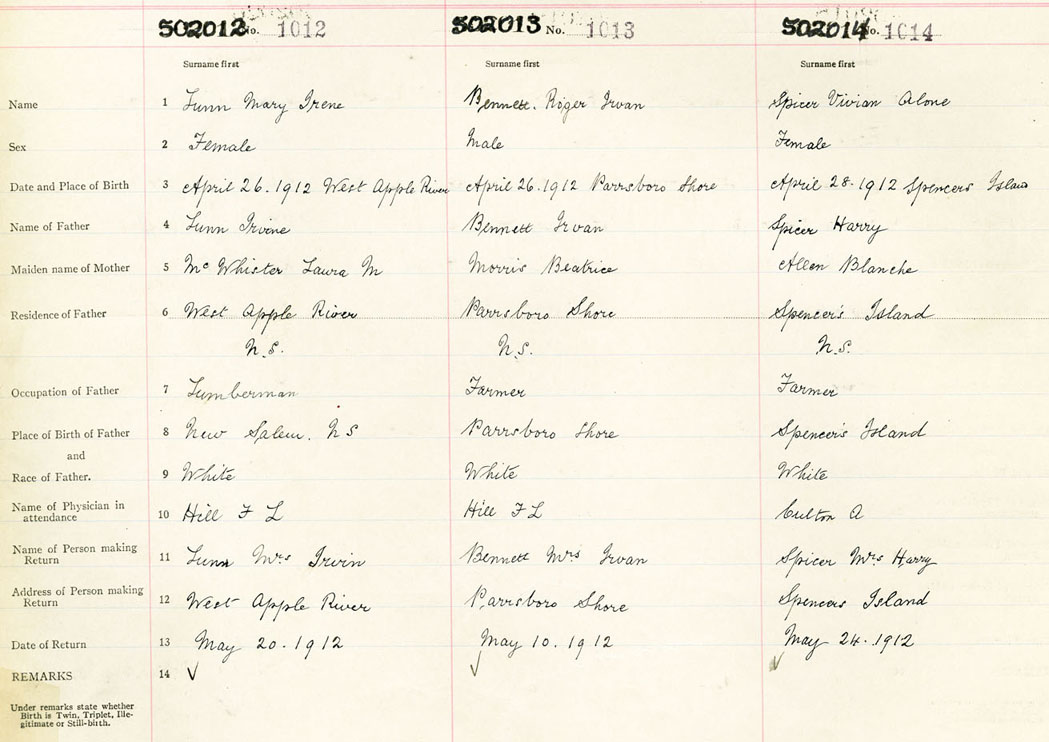 502012 No. 1012 502013 No. 1013 502014 No. 1014
Surname first Surname first Surname first
Name 1 Lunn Mary Irene Bennett. Roger Irvan Spicer Vivian Alone
Sex 2 Female Male Female
Date and Place of Birth 3 April 26. 1912 West Apple River April 26. 1912 Parrsboro Shore April 28. 1912 Spencers Island
Name of Father 4 Lunn Irvine Bennett Irvan Spicer Harry
Maiden name of Mother 5 Mc Whister Laura M Morris Beatrice Allen Blanche
Residence of Father 6 West Apple River Parrsboro Shore Spencer's Island
N.S. N.S. N.S.
Occupation of Father 7 Lumberman Farmer Farmer
Place of Birth of Father 8 New Salem. N S Parrsboro Shore Spencer's Island
and
Race of Father. 9 White White White
Name of Physician in
attendance 10 Hill F L Hill F L A
Name of Person making
Return 11 Lunn Mrs Irvin Bennett Mrs Irvan Spicer Mrs Harry
Address of Person making
Return 12 West Apple River Parrsboro Shore Spencers Island
Date of Return 13 May 20. 1912 May 10. 1912 May 24. 1912
REMARKS 14 ✓ ✓ ✓
Under remarks state whether
Birth is Twin, Triplet, Ille-
gitimate or Still-birth.